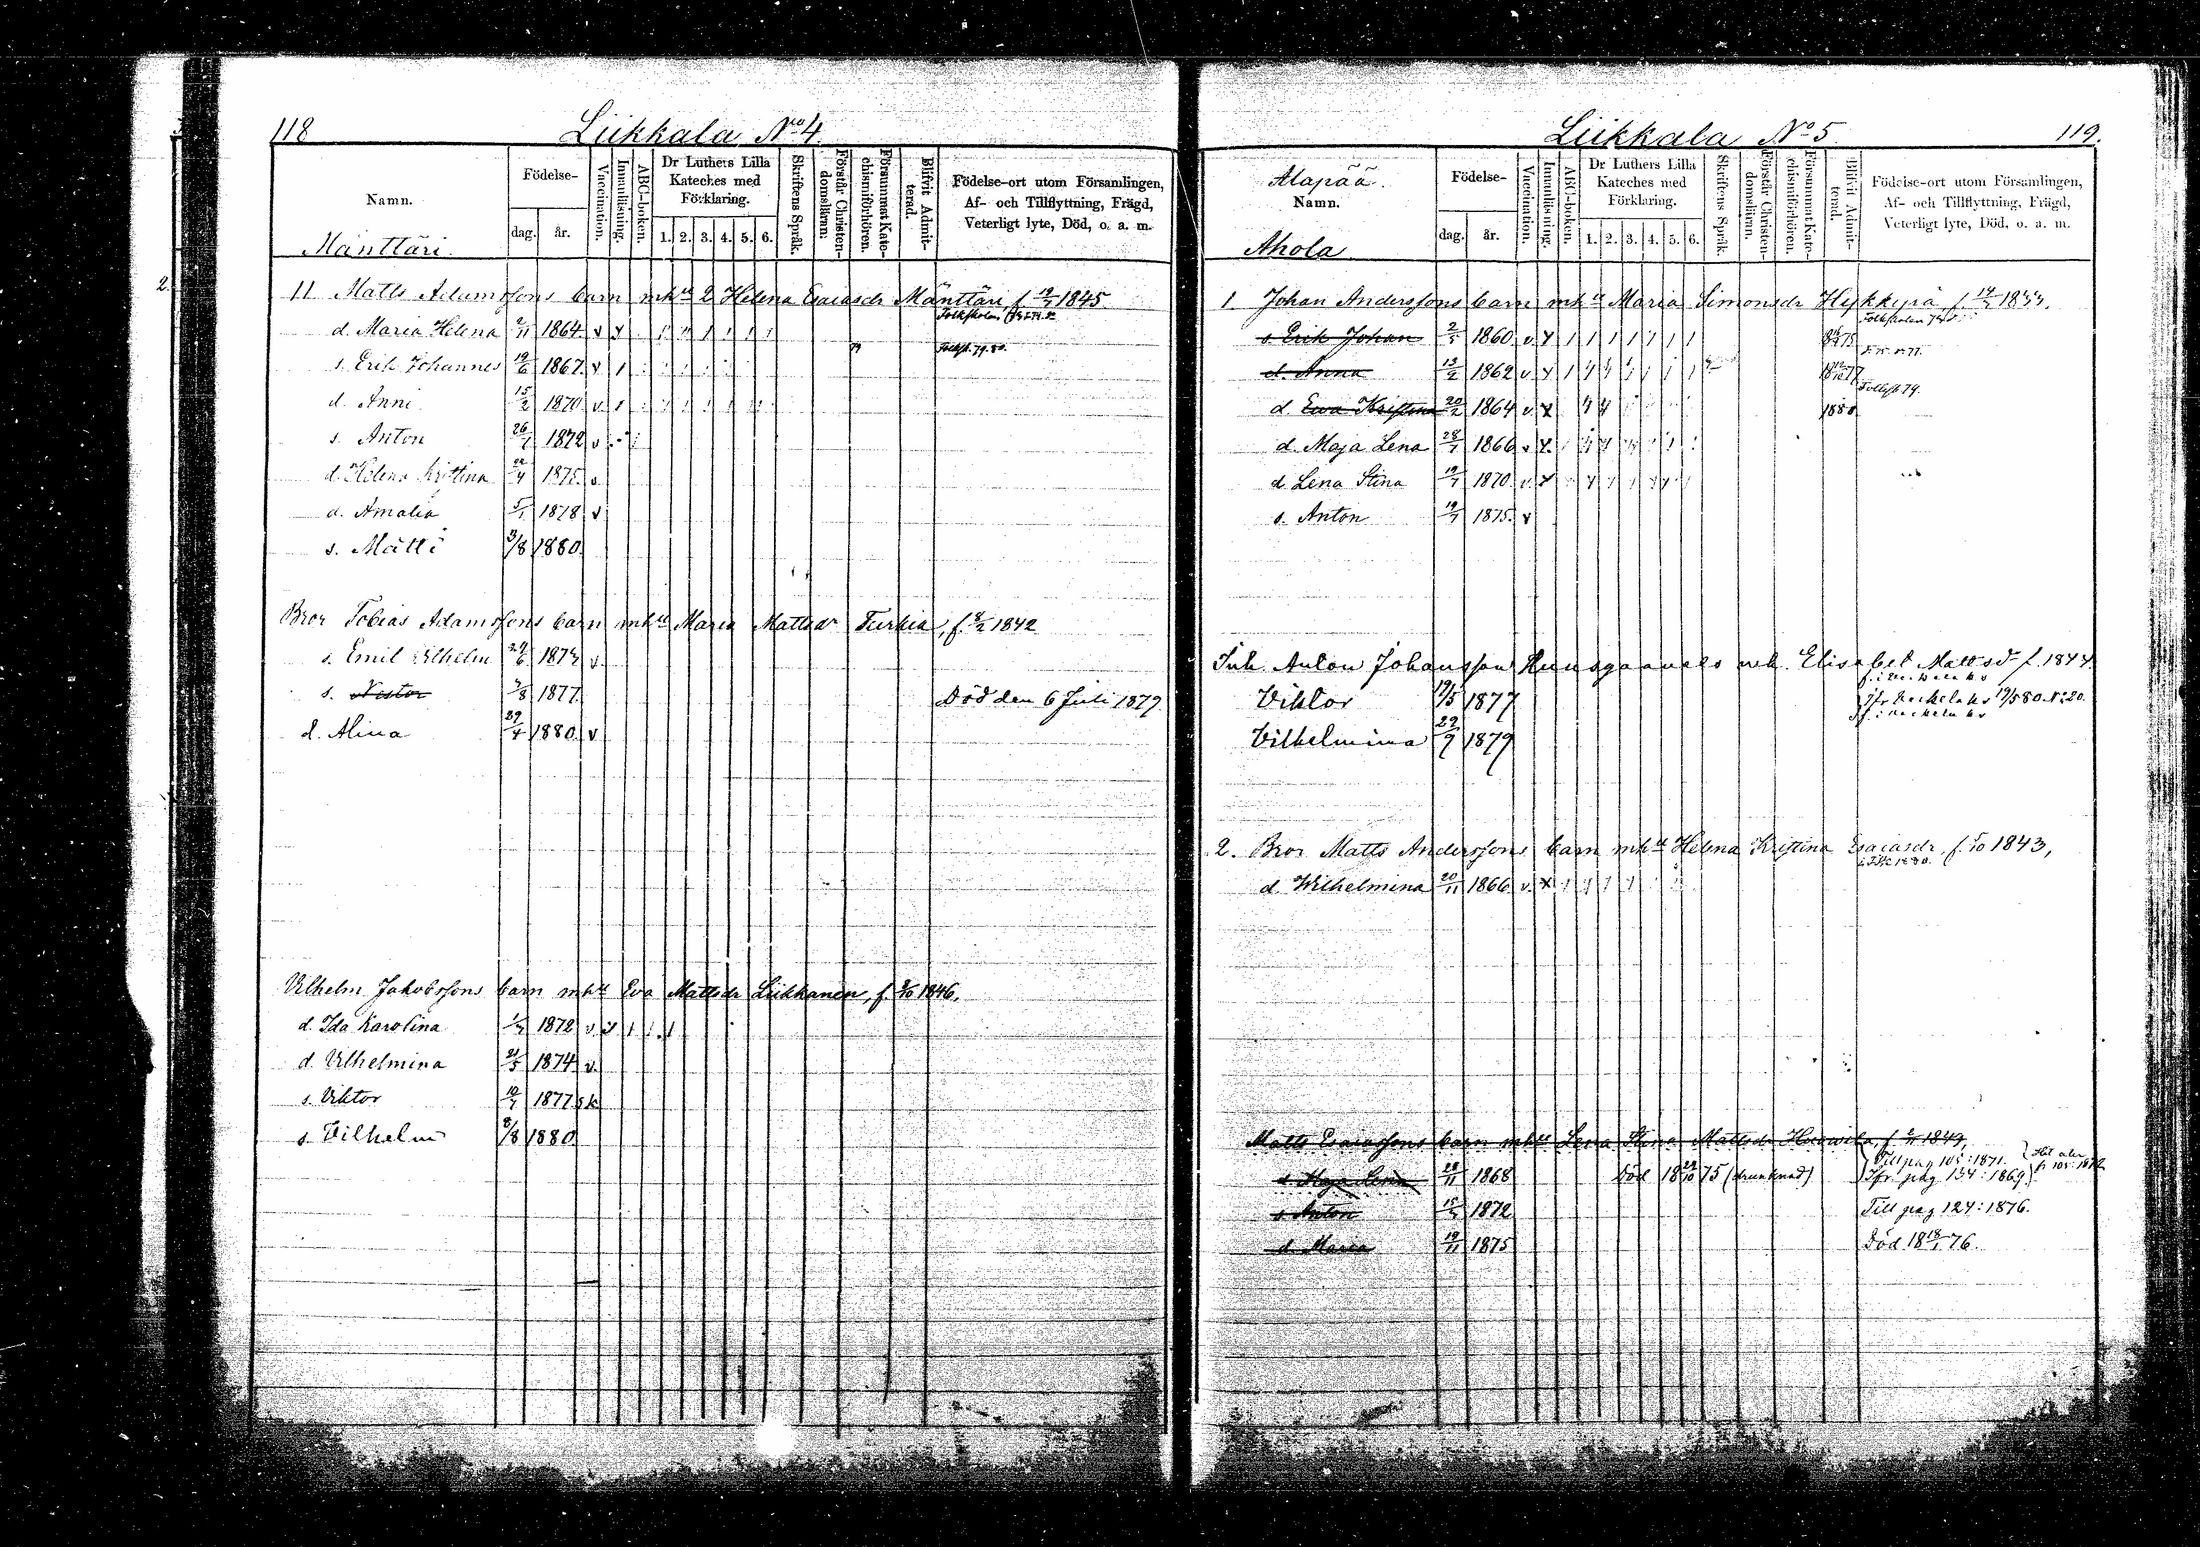 118
Liikkala No 4.
Namn.
Mänttäri.
Födelse-
dag. år.
Vaccination.
Innanläsning.
ABC-boken.
Dr Luthers Lilla Kateches med Förklaring.
1. 2. 3. 4. 5. 6.
Skriftens Språk.
Förstår Christen-domsläran:
Försummat Kate-chismiförhören.
Blifvit Admit-terad.
Födelse-ort utom Församlingen,
Af- och Tillflyttning, Frägd,
Veterligt lyte, Död, o. a. m.
11 Matts Adamssons barn mhu 2 Helena Esaiasdr Mänttäri f 1845
d. Maria Helena 2/11 1864 v
s. Erik Johannes 19/6 1867 v Folksk. 79.80.
d. Anni 15/2 1870 v
s. Anton 1872 v
d. Helena Kristina 1875 v
d. Amalia 5/1 1878 v
s. Matti 3/8 1880
Bror Tobias Adamssons barn mhu Maria Mattsdr Turkia, f. 1842
s. Emil Vilhelm 29/6 1873 v.
s. Nestor 1877. Död den 6 Juli 1879
d. Alina 29/4 1880 v
Vilhelm Jakobssons barn mhu Eva Mattsdr Liikkanen, f. 1846.
d. Ida Karolina 1872 v
d. Vilhelmina 21/5 1874 v.
s. Viktor 10/7 1877 sk
s. Vilhelm 8/8 1880
Liikkala No 5.
119.
Alapää.
Namn.
Ahola.
Födelse-
dag. år.
Vaccination.
Innanläsning.
ABC-boken.
Dr Luthers Lilla Kateches med Förklaring.
1. 2. 3. 4. 5. 6.
Skriftens Språk.
Förstår Christen-domsläran.
Försummat Kate-chismiförhören.
Blifvit Admit-terad.
Födelse-ort utom Församlingen,
Af- och Tillflyttning, Frägd,
Veterligt lyte, Död, o. a. m.
1. Johan Anderssons barn mhu Maria Simonsdr Hykkyrä f
s. Erik Johan 1860 v
d. Anna 13/2 1862 v
d. Ewa Kristina 20/2 1864 v 1880 Folksk 79.
d. Maja Lena 1866 v
d Lena Stina 1870 v
s. Anton 1875 v
Inh. Anton Johansson mh. Elisabet Mattsdr f. 1844.
Viktor 19/5 1877
Vilhelmina 29/9 1879
2. Bror Matts Anderssons barn mhu Helena Kristina Esaiasdr f. 1843,
d Wilhelmina 20/11 1866 v
Matts Esaiassons barn mhu Lena Stina Mattsdr f 1849,
d Maja Lena 28/11 1868 Död 18 29/10 75 (drunknad) Till pag 105:1871. Ifr. pag 134:1869
s. Anton 1872 Till pag 124:1876.
d Maria 19/11 1875 Död 18 18/1 76.